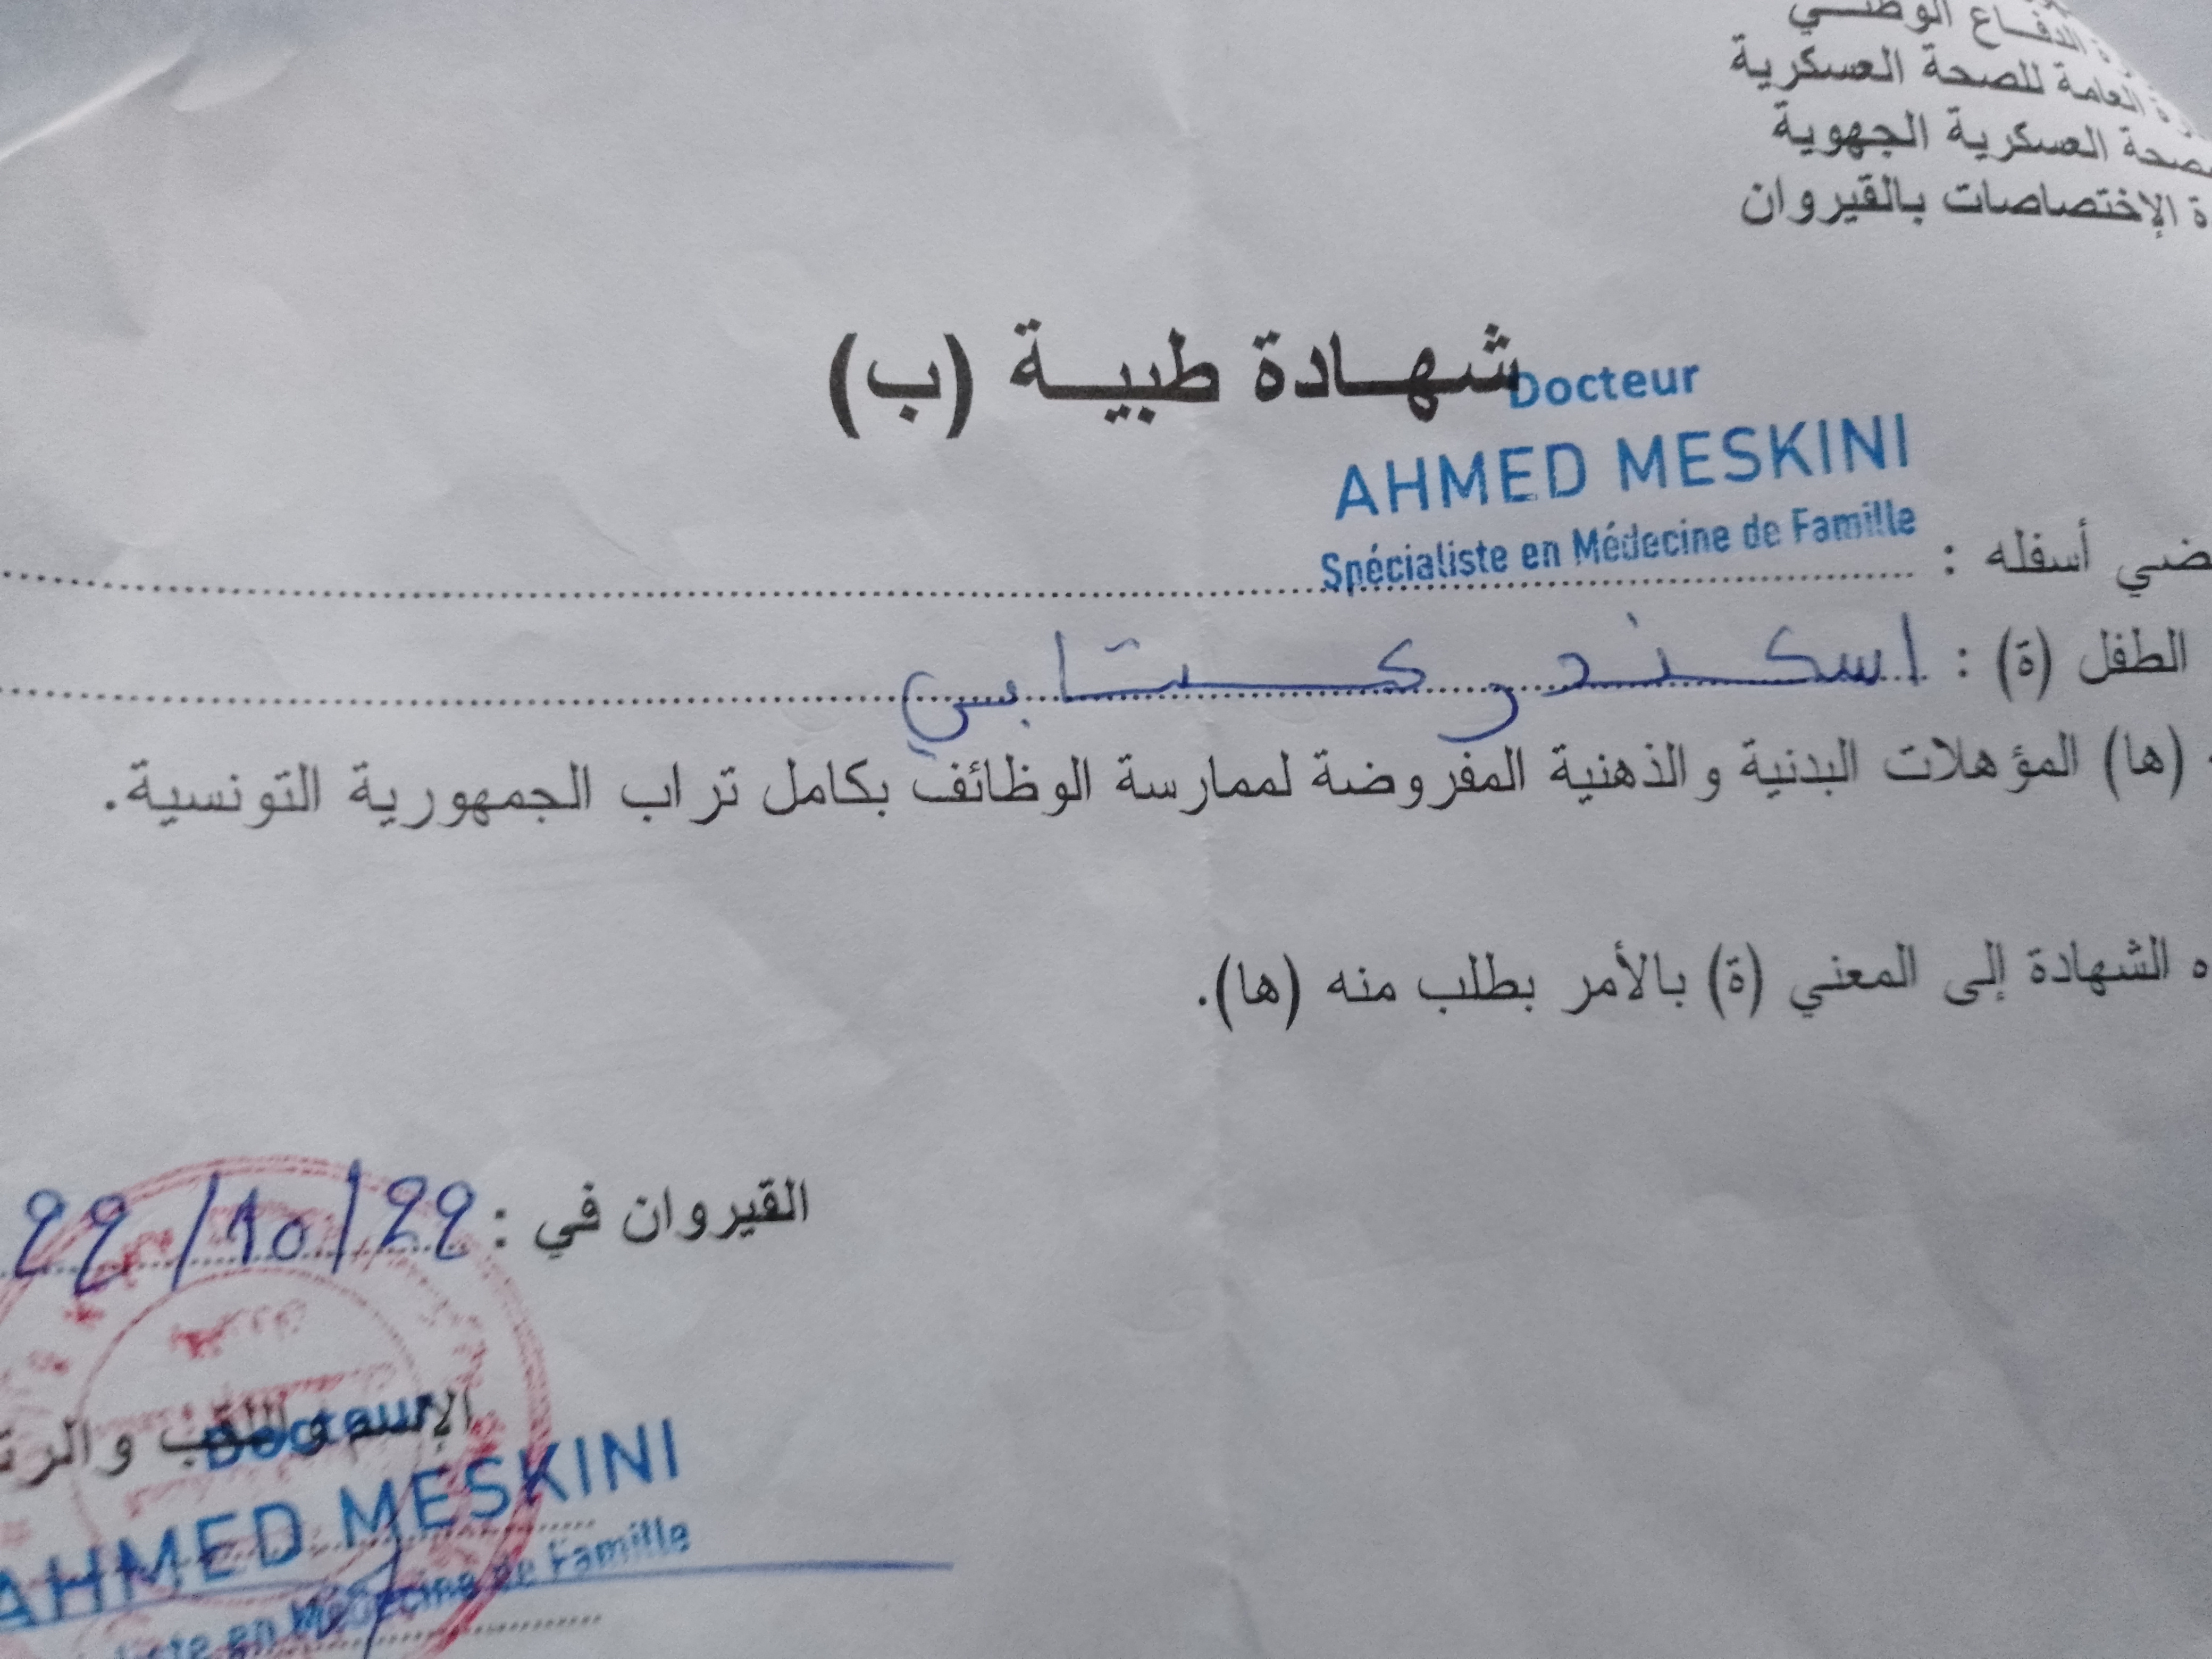 الدفــاع الوطنــي
العامة للصحة العسكرية
الصحة العسكرية الجهوية
الإختصاصات بالقيروان
شهــادة طبيــة (ب)
Docteur
AHMED MESKINI
Spécialiste en Médecine de Famille
أسفله :
الطفل (ة) : اسكندر كتابي
(ها) المؤهلات البدنية والذهنية المفروضة لممارسة الوظائف بكامل تراب الجمهورية التونسية.
الشهادة إلى المعني (ة) بالأمر بطلب منه (ها).
القيروان في : 22/10/22
الإسم واللقب
Docteur
AHMED MESKINI
en Médecine de Famille